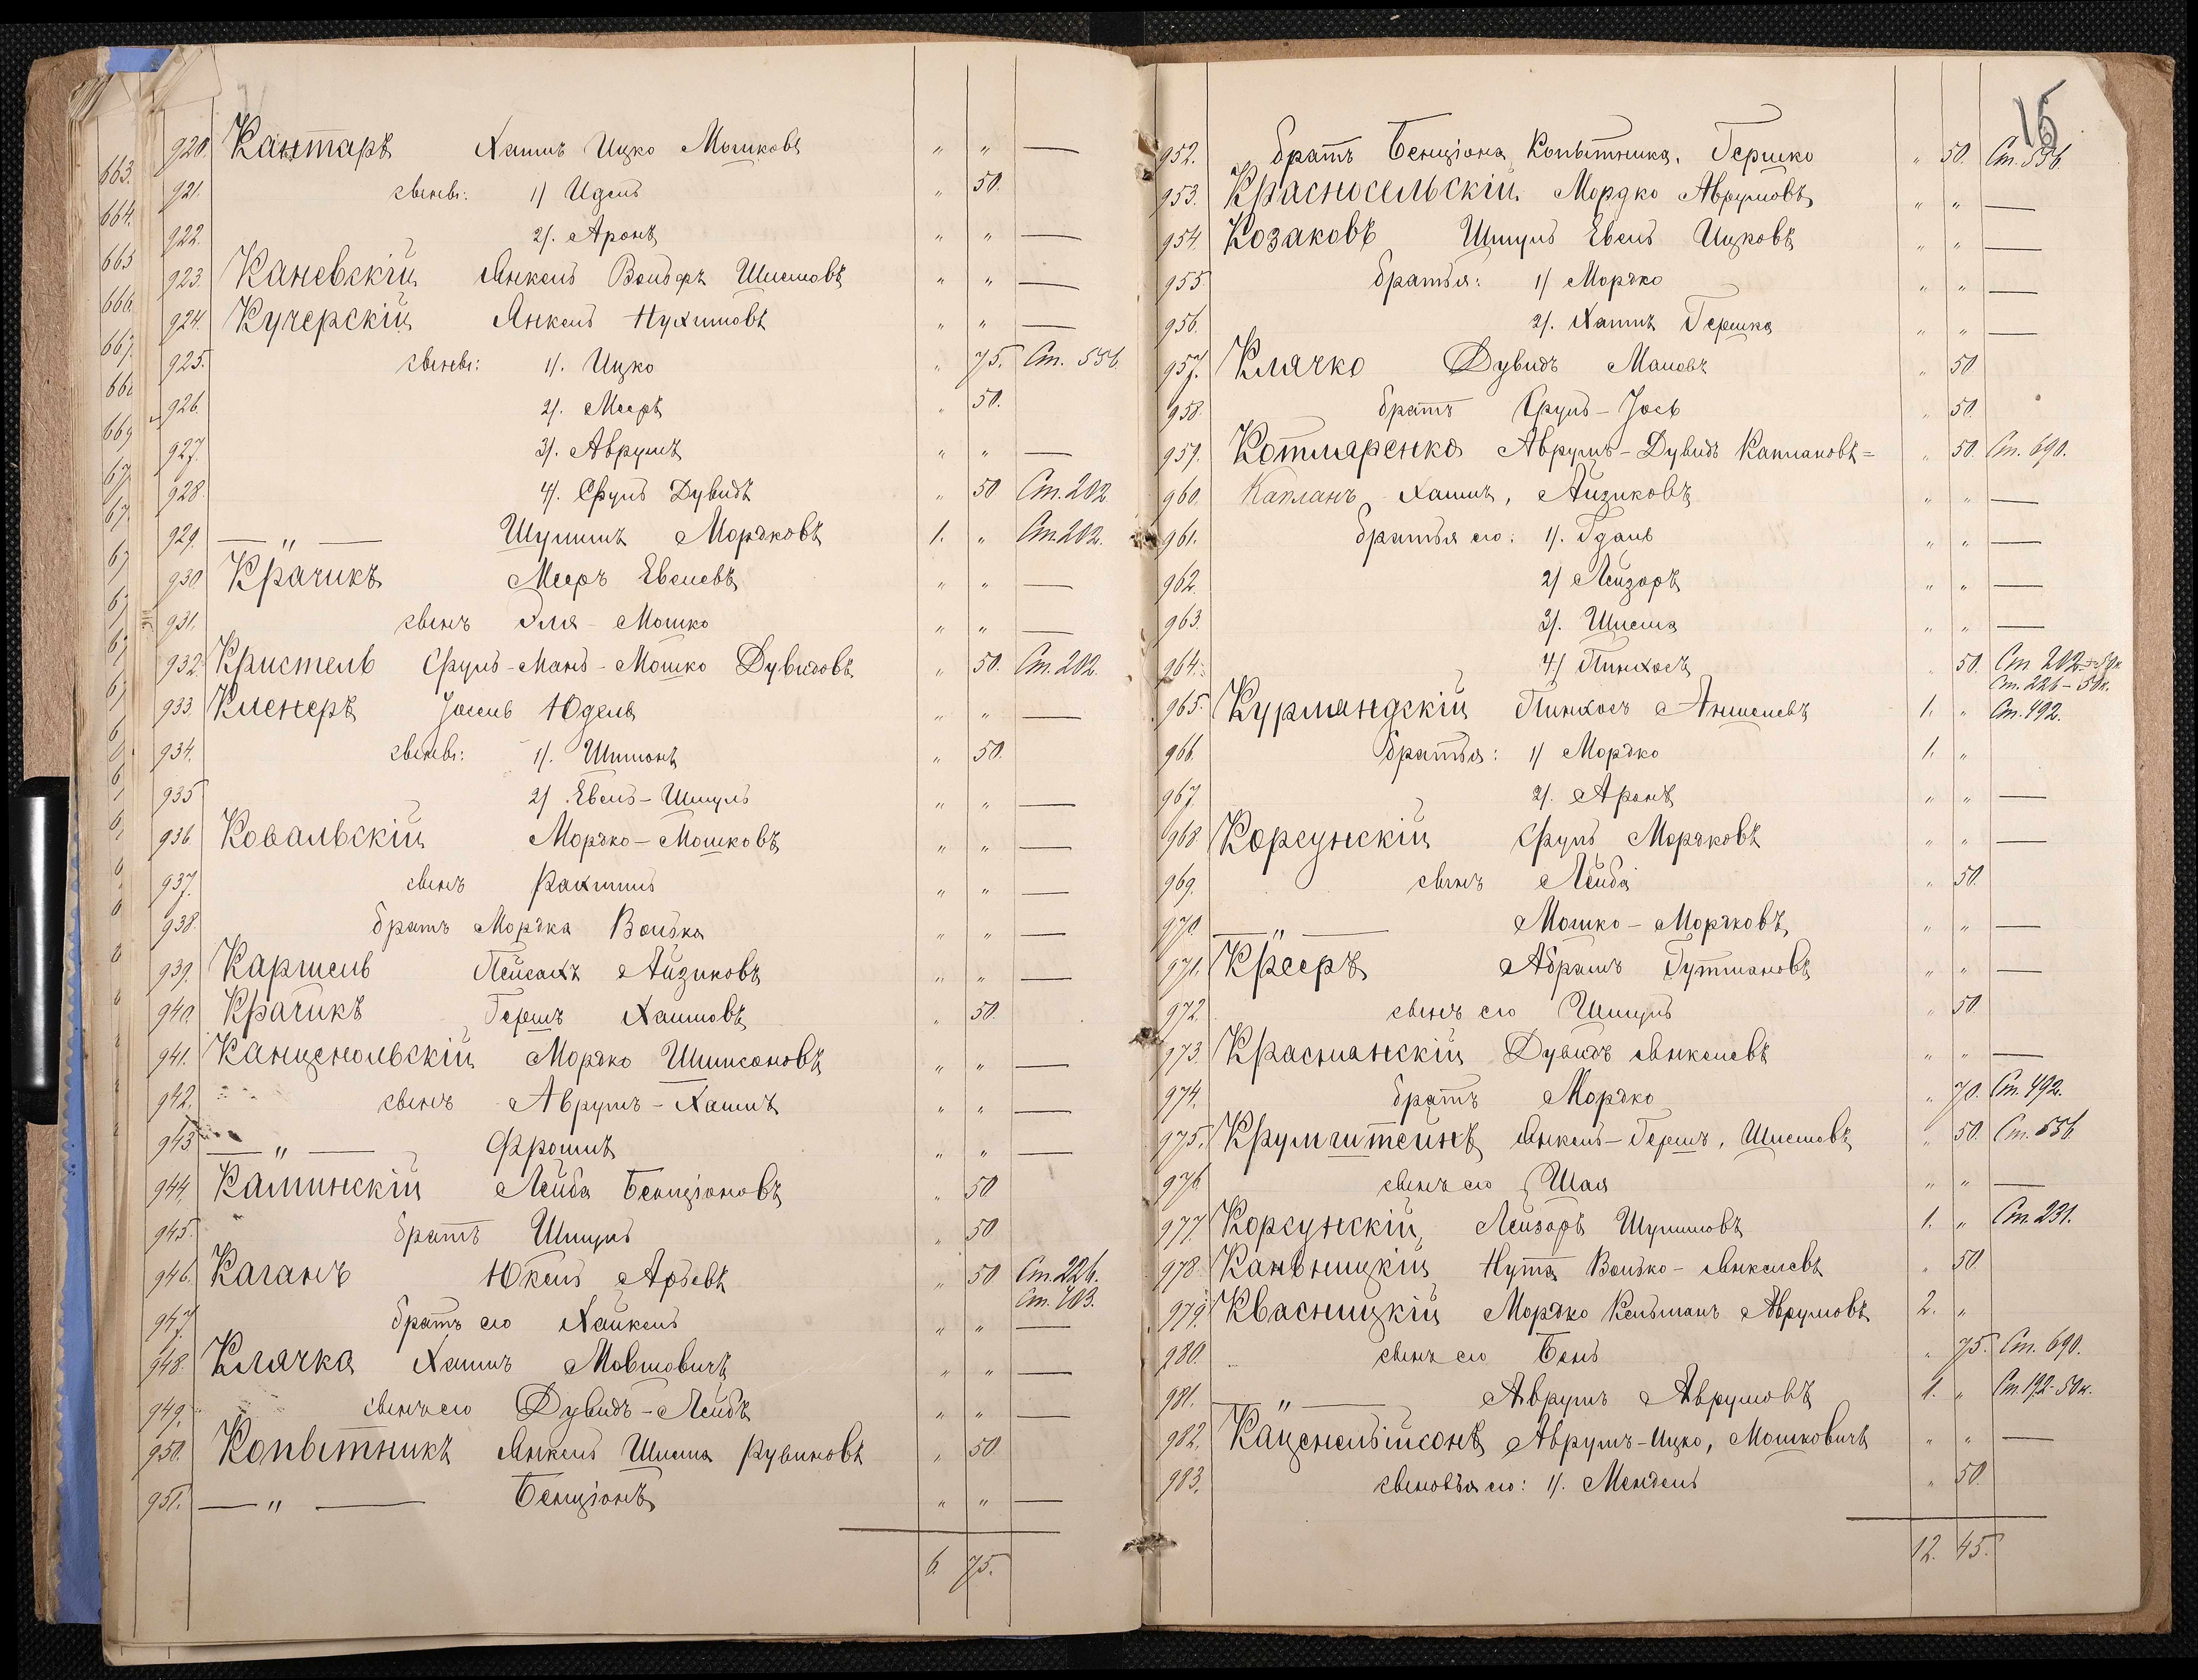 920. Кантаръ Хаимъ Ицко Мошковъ " " —
921. сыновья: 1/ Идель " 50.
922. 2/. Аронъ " " —
923. Каневскій Янкель Вольфъ Шлемовъ " " —
924. Кучерскій Янкель Нухимовъ " " —
925. сыновья: 1/. Ицко " 75. Ст. 556.
926. 2/. Мееръ " 50.
927. 3/. Аврумъ " " —
928. 4/. Сруль Дувидъ " 50 Ст. 202
929. — " — Шулимъ Мордковъ 1. " Ст. 202.
930 Крачикъ Мееръ Евелевъ " " —
931. сынъ Эля - Мошко " " —
932. Кристель Сруль-Мань-Мошко Дувидовъ " 50. Ст. 202.
933. Кленеръ Іосель Юделя " " —
934. сыновья: 1/. Шимонъ " 50.
935 2/. Евель-Шмуль " " —
936. Ковальскій Мордко-Мошковъ " " —
937. сынъ Рахмиль " " —
938. братъ Мордка Волька " " —
939. Кармель Пейсахъ Айзиковъ " " —
940. Крачикъ Гершъ Хаимовъ " 50.
941. Канценольскій Мордко Шимсоновъ " " —
942. сынъ Аврумъ-Хаимъ " " —
943 — " — Фроимъ " " —
944. Каминскій Лейба Бенціоновъ " 50
945. братъ Шмуль " 50
946. Каганъ Юкель Арьевъ " 50 Ст. 226.
Ст. 703.
947. братъ его Хайкель " " —
948. Клячка Хаимъ Мовшовичъ " " —
949. сынъ его Дувидъ-Лейбъ " " —
950. Копытникъ Янкель Шлема Рувиновъ " 50
951. — " — Бенціонъ " " —
6. 75.
663.
664.
665
666.
667.
669
15
952. братъ Бенціона Копытника, Гершко " 50. Ст. 556.
953. Красносельскій Мордко Аврумовъ " " —
954. Козаковъ Шмуль Евель Ицковъ " " —
955 братья: 1/ Мордко " " —
956. 2/. Хаимъ Гершка " " —
957. Клячко Дувидъ Мановъ " 50
958. братъ Сруль-Іось " 50.
959. Котляренко Аврумъ-Дувидъ Каплановъ= " 50. Ст. 690.
960. Капланъ Хаимъ, Айзиковъ " " —
961. братья его: 1/. Гдаль " " —
962. 2/ Лейзоръ " " —
963. 3/. Шлема " " —
964. 4/ Пинхосъ " 50. Ст. 202-50к
Ст. 226-50к.
965. Курляндскій Пинхосъ Аншелевъ 1. " Ст. 492.
966. братья: 1/ Мордко 1. "
967. 2/. Аронъ " " —
968. Корсунскій Сруль Мордковъ " " —
969. сынъ Лейба " 50.
970. — " — Мошко-Мордковъ " " —
971. Кресеръ Абрамъ Гутмановъ " " —
972. сынъ его Шмуль " 50.
973. Краснянскій Дувидъ Янкелевъ " " —
974. братъ Мордко " 70. Ст. 492.
975. Крумштейнъ Янкель-Гершъ, Шлемовъ " 50. Ст. 556
976 сынъ его Шая " " —
977. Корсунскій, Лейзоръ Шулимовъ 1. " Ст. 231.
978 Каневницкій Нута Волько-Янкелевъ " 50.
979. Квасницкій Мордко Кельманъ Аврумовъ 2. "
980. сынъ его Бень " 75. Ст. 690.
981. — " — Аврумъ Аврумовъ 1. " Ст. 192-50к.
982. Каценельсонъ Аврумъ-Ицко, Мошковичъ " " —
983. сыновья его: 1/. Мендель " 50.
12. 45.